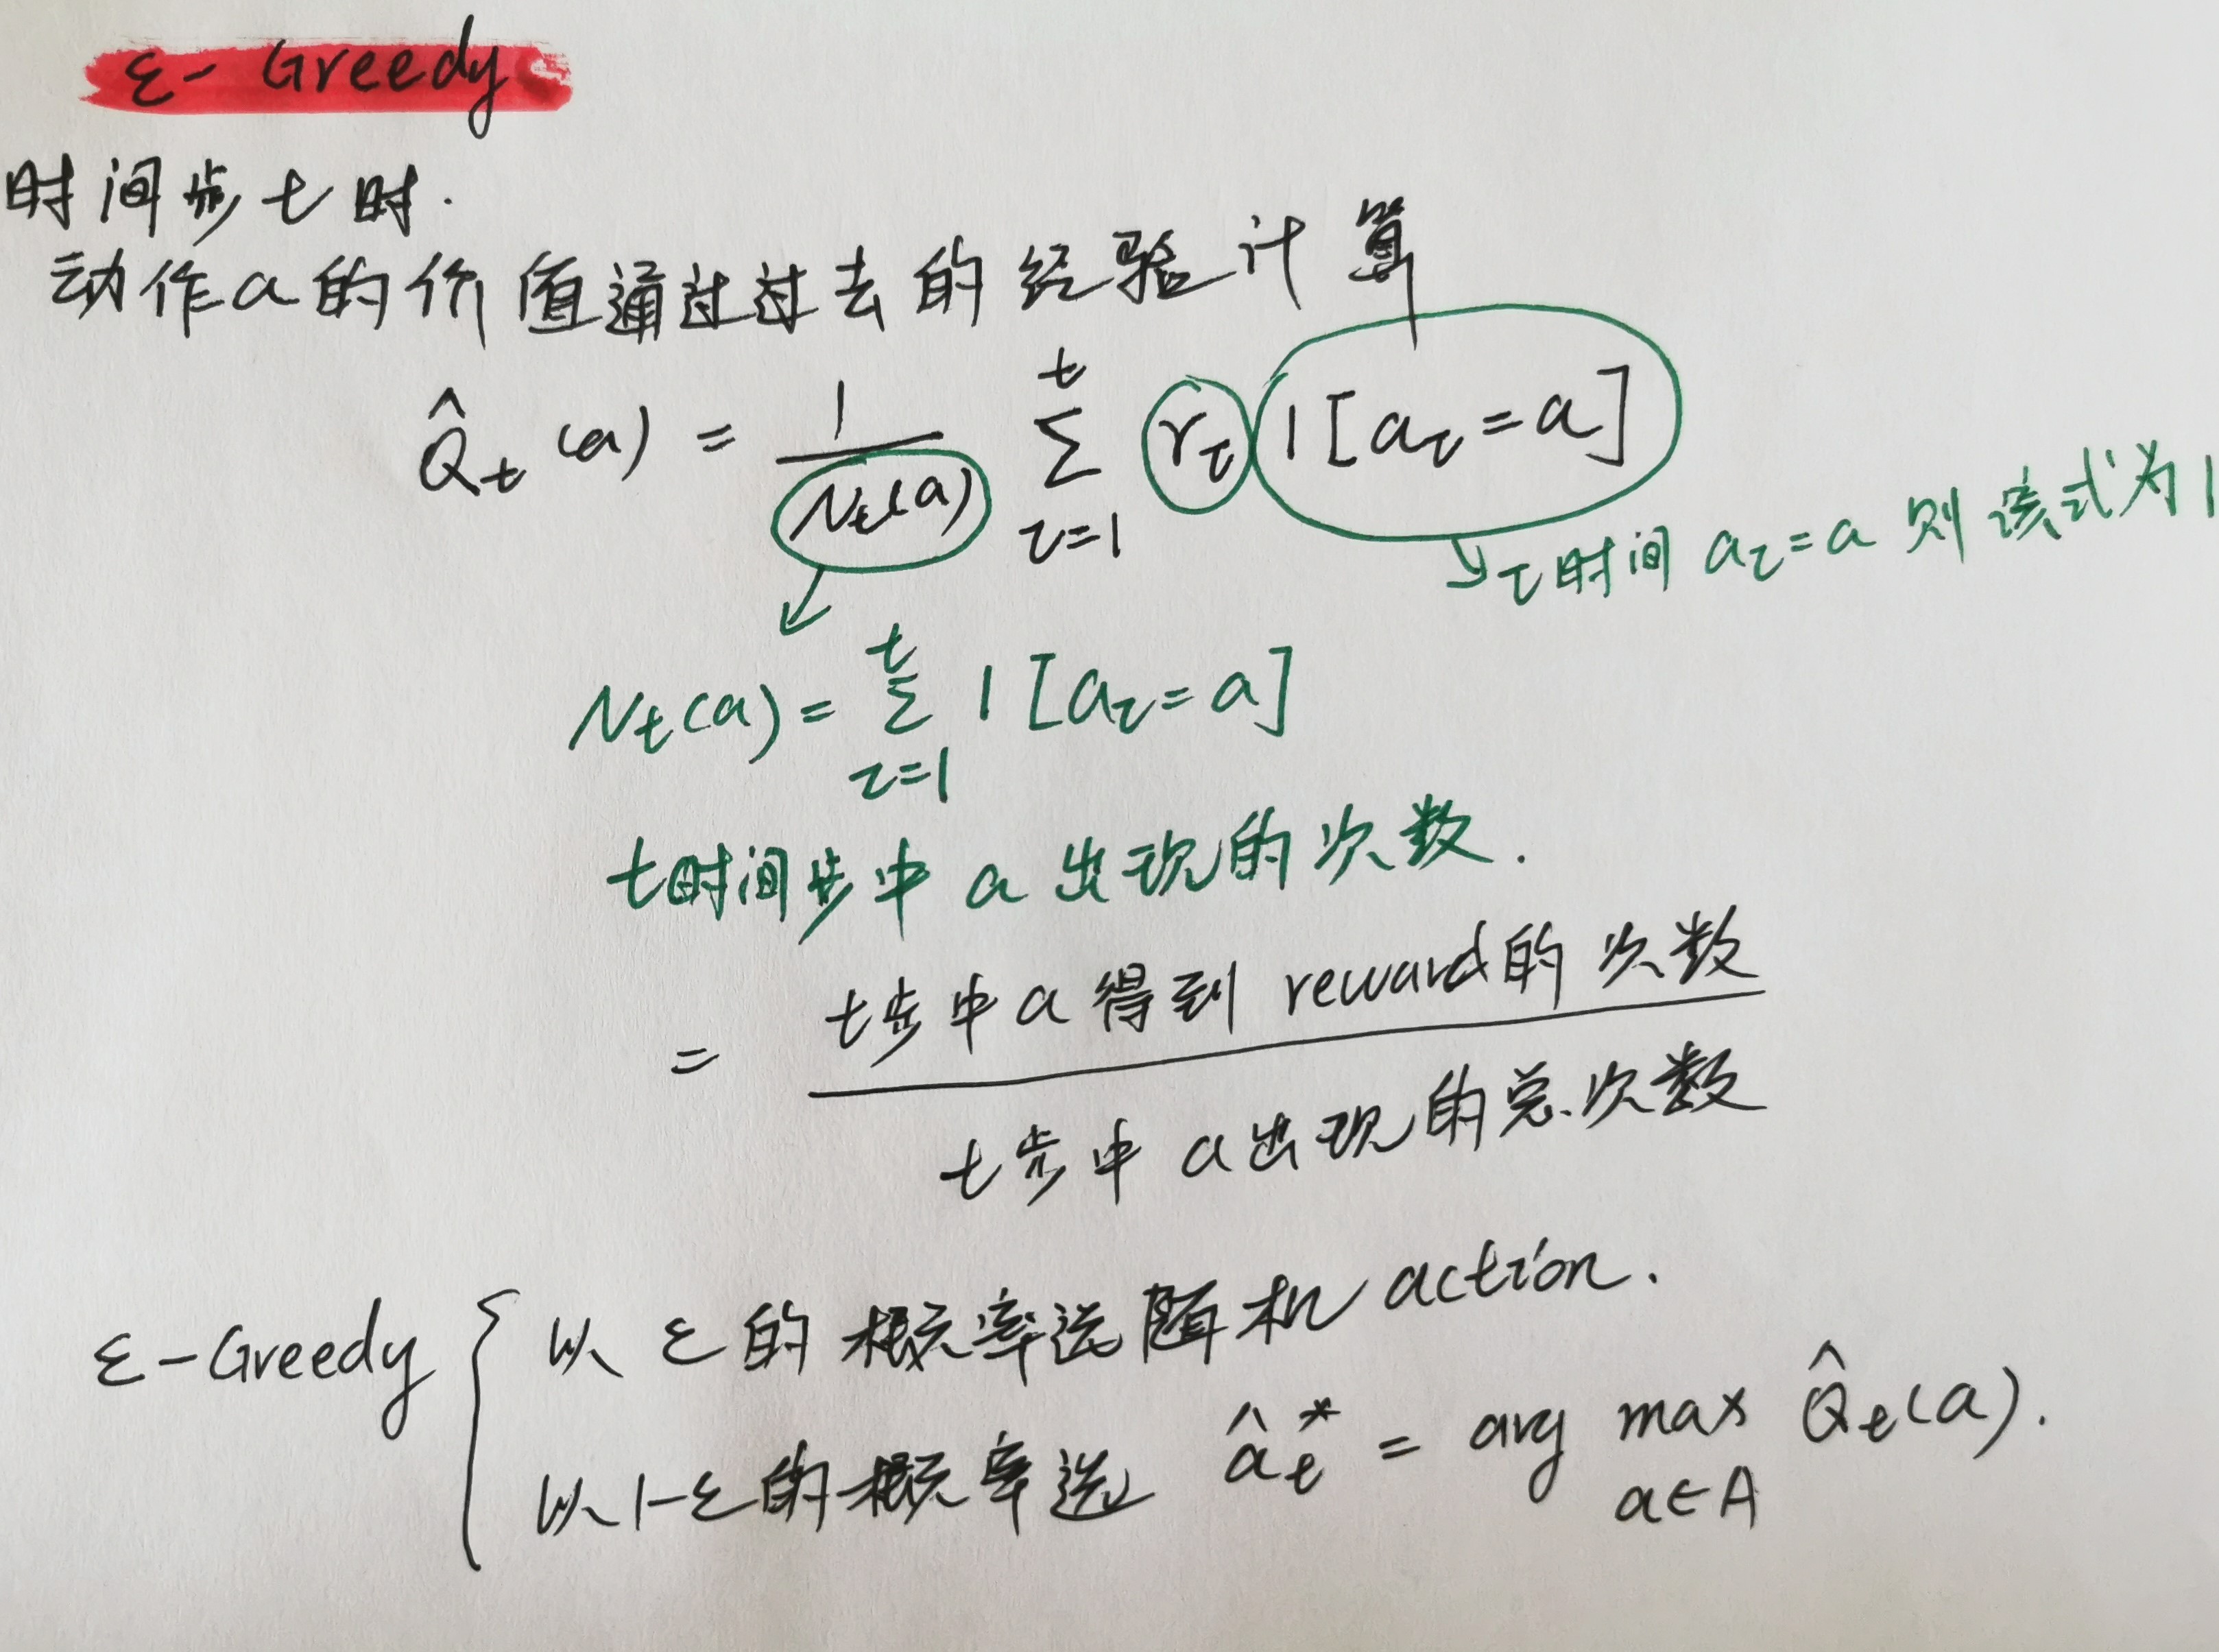 ε- Greedy
时间步 t 时.
动作a的价值通过过去的经验计算
Q̂t (a) = 1/Nt(a) Σ_{τ=1}^{t} rτ 1[aτ=a]
→τ时间 aτ=a 则该式为1
Nt(a) = Σ_{τ=1}^{t} 1[aτ=a]
t时间步中 a 出现的次数.
= t步中a得到 reward的次数
t步中 a出现的总次数
ε-Greedy { 以 ε 的概率选随机 action.
以1-ε的概率选 ât* = arg max_{a∈A} Q̂t(a).